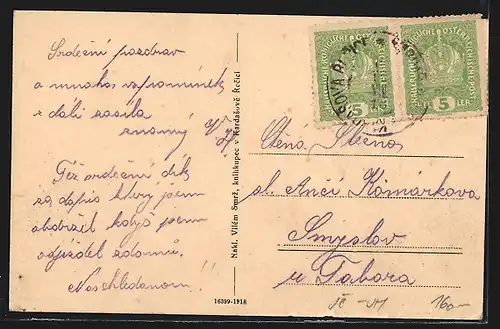 Srdečný pozdrav
a mnoho vzpomínek
z dáli zasílá
známý
Též srdečný dík
za dopis který jsem
obdržel když jsem
odjížděl z domů.
Naschledanou!!
Nakl. Vilém Smrž, knihkupec v Kardašově Řečici
16399-1918
KAISERLICHE KÖNIGLICHE ÖSTERREICHISCHE POST
5
KAISERLICHE KÖNIGLICHE ÖSTERREICHISCHE POST
5
HELLER
Ctěná Slečna
sl. Anči Komárkova
Smyslov
u Tábora
160-